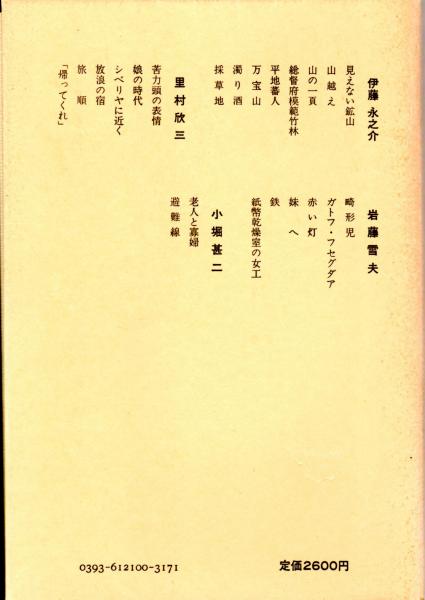 伊藤永之介
見えない鉱山
山越え
山の一頁
総督府模範竹林
平地蕃人
万宝山
濁り酒
採草地
里村欣三
苦力頭の表情
娘の時代
シベリヤに近く
放浪の宿
旅順
「帰ってくれ」
岩藤雪夫
畸形児
ガトフ・フセグダア
赤い灯
妹へ
鉄
紙幣乾燥室の女工
小堀甚二
老人と寡婦
避難線
0393-612100-3171
定価2600円